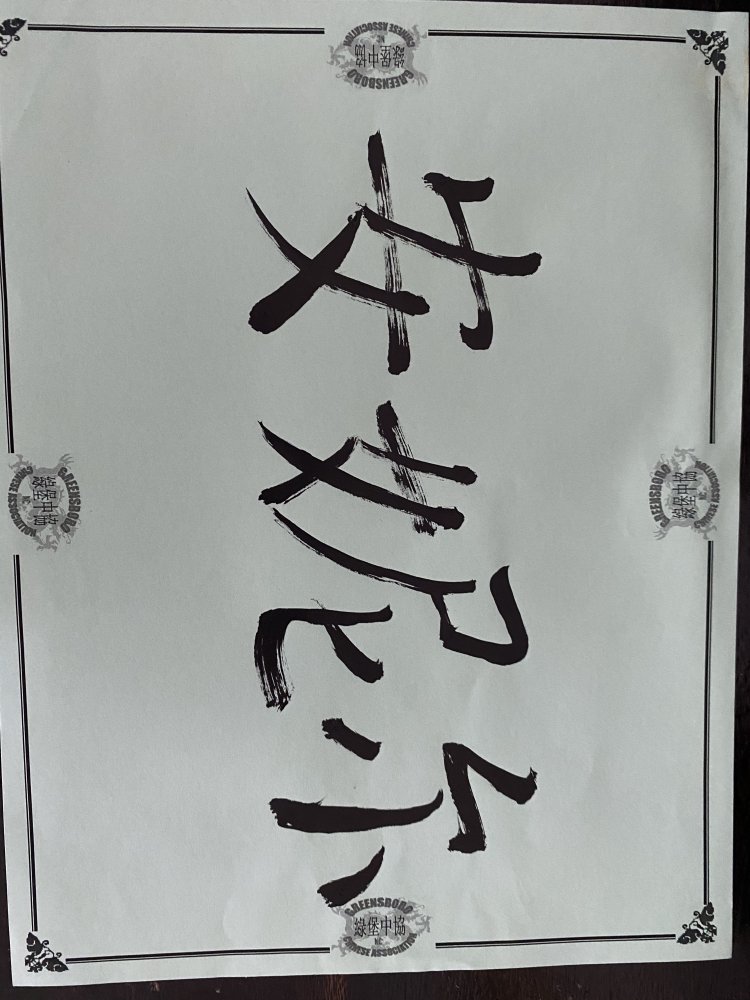 GREENSBORO
綠堡中協
NC
CHINESE ASSOCIATION
GREENSBORO
綠堡中協
NC
CHINESE ASSOCIATION
安妮尔
GREENSBORO
綠堡中協
NC
CHINESE ASSOCIATION
GREENSBORO
綠堡中協
NC
CHINESE ASSOCIATION